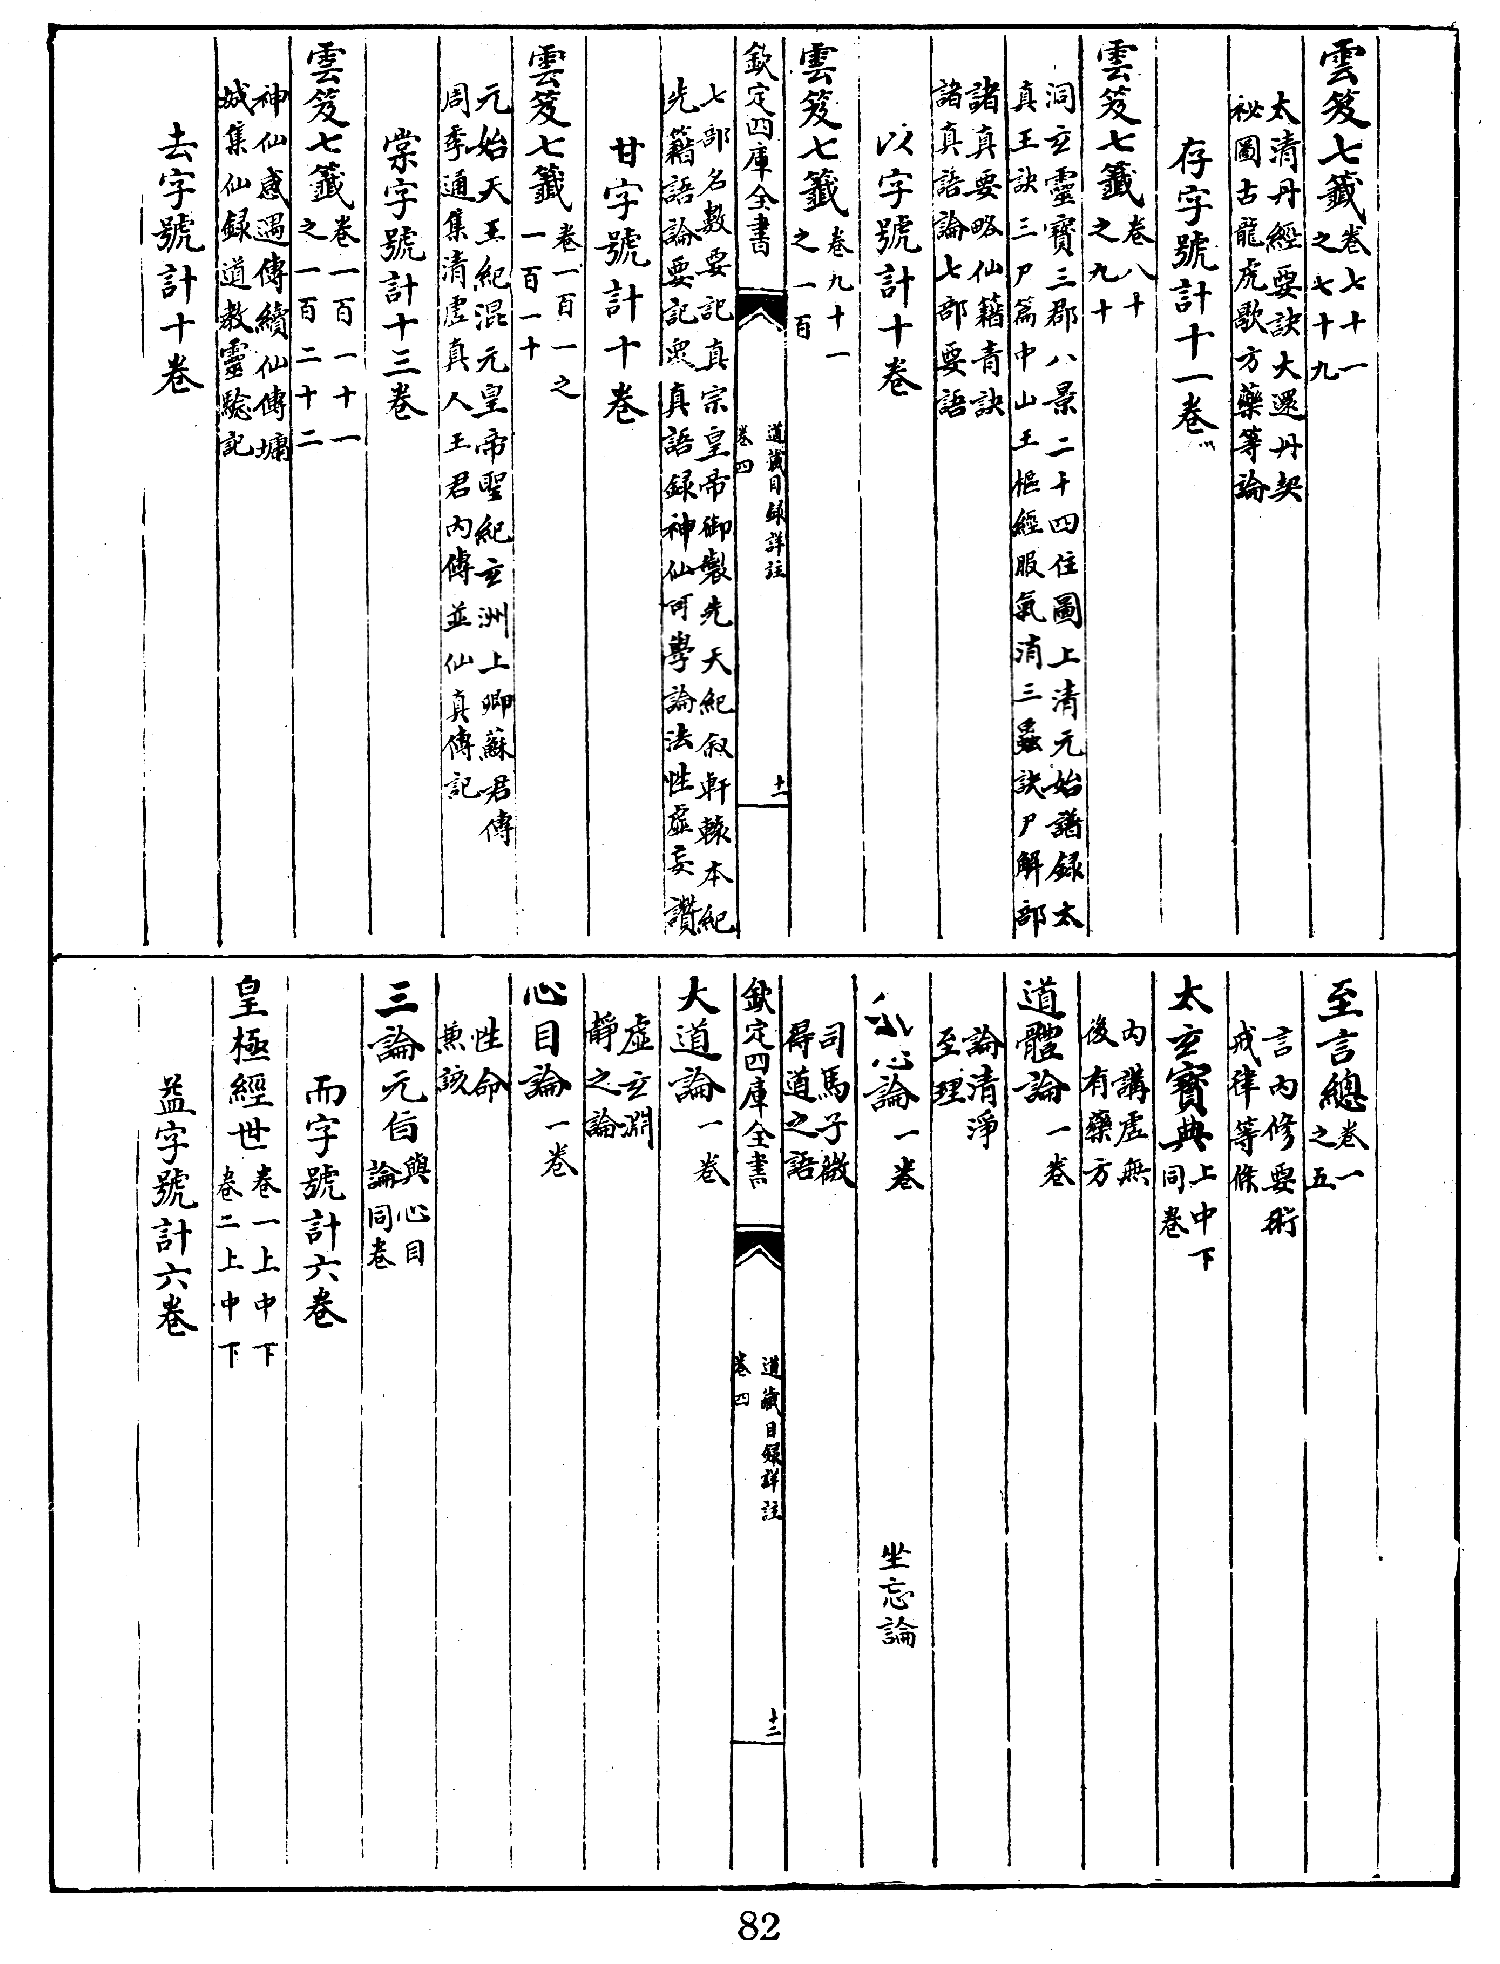 雲笈七籤卷七十一之七十九
太清丹經要訣大還丹契
祕圖古龍虎歌方藥等論
存字號計十一卷
雲笈七籤卷八十之九十
洞玄靈寶三部八景二十四住圖上清元始譜録太
真王訣三尸篇中山王樞經服氣消三蟲訣尸解部
諸真要略仙籍青訣
諸真語論七部要語
以字號計十卷
雲笈七籤卷九十一之一百
欽定四庫全書
道藏目録詳註
卷四
十一
七部名數要記真宗皇帝御製先天紀叙軒轅本紀
先籍語論要記衆真語録神仙可學論法性虛妄讚
甘字號計十卷
雲笈七籤卷一百一之一百一十
元始天王紀混元皇帝聖紀玄洲上卿蘇君傳
周季通集清虛真人王君內傳並仙真傳記
棠字號計十三卷
雲笈七籤卷一百一十一之一百二十二
神仙感遇傳續仙傳墉
城集仙録道教靈驗記
去字號計十卷
至言總卷一之五
言內修要術
戒律等條
太玄寶典上中下同卷
內講虛無
後有藥方
道體論一卷
論清淨
至理
心論一卷 坐忘論
司馬子微
得道之語
欽定四庫全書
道藏目録詳註
卷四
十二
大道論一卷
虛玄淵
靜之論
心目論一卷
性命
兼該
三論元旨與心目論同卷
而字號計六卷
皇極經世卷一上中下卷二上中下
益字號計六卷
82